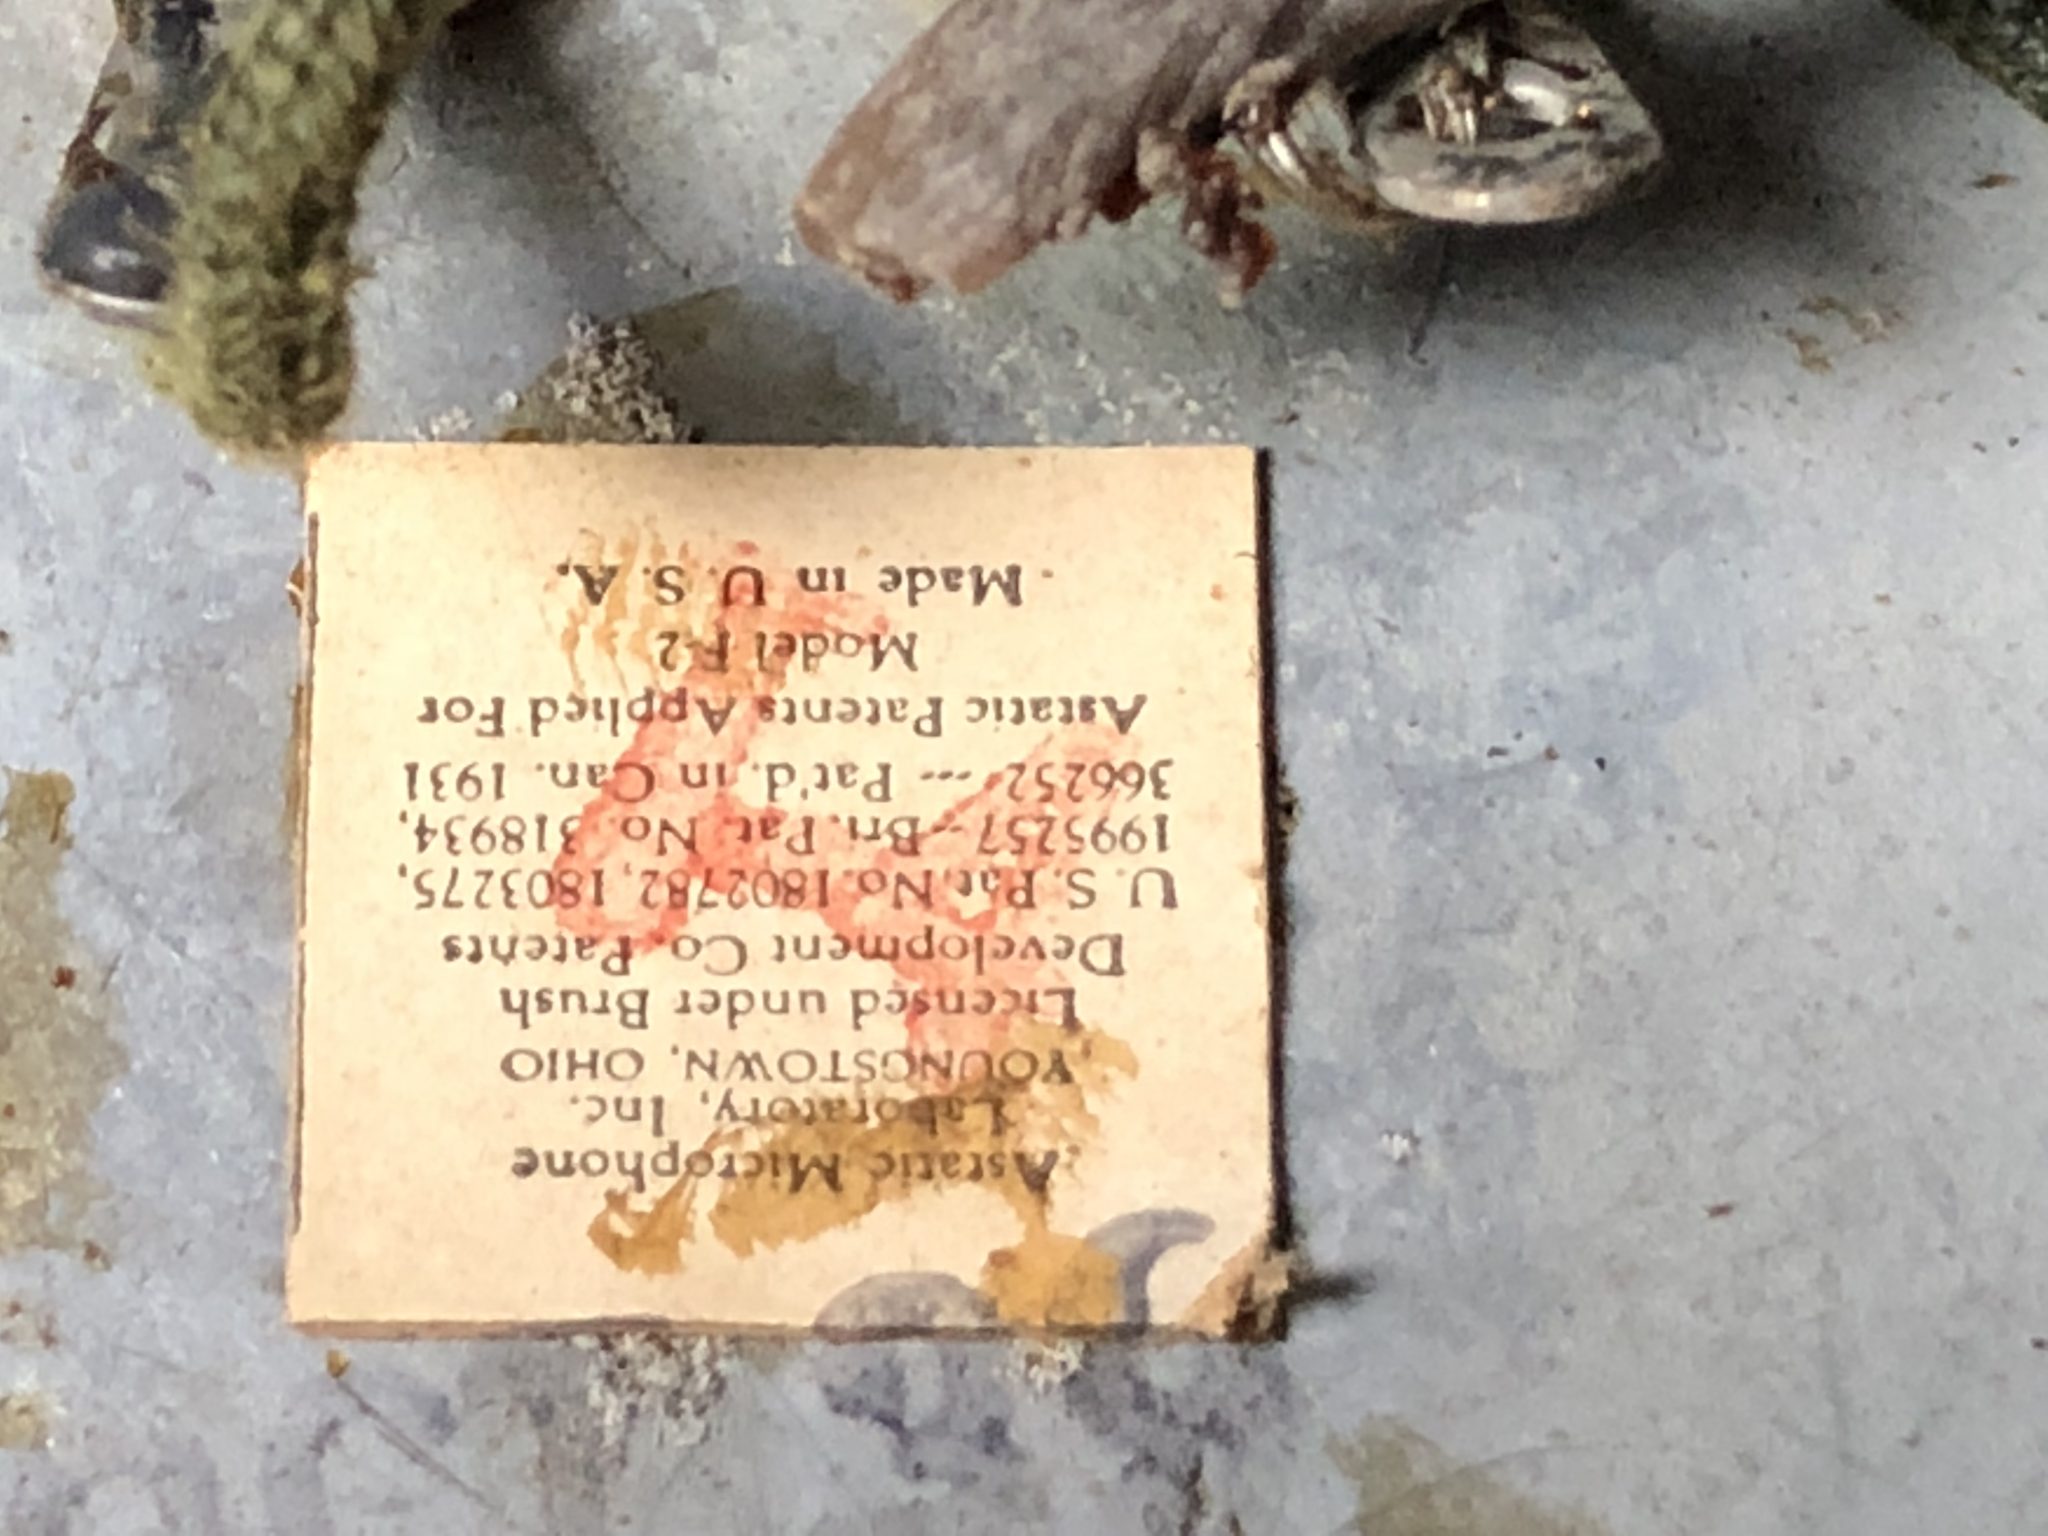 Astatic Microphone
Laboratory, Inc.
YOUNGSTOWN, OHIO
Licensed under Brush
Development Co. Patents
U. S. Pat. No. 1802782, 1803275,
1995257--Bri. Pat. No. 318934,
366252 --- Pat'd. in Can. 1931
Astatic Patents Applied For
Model F-2
Made in U. S. A.